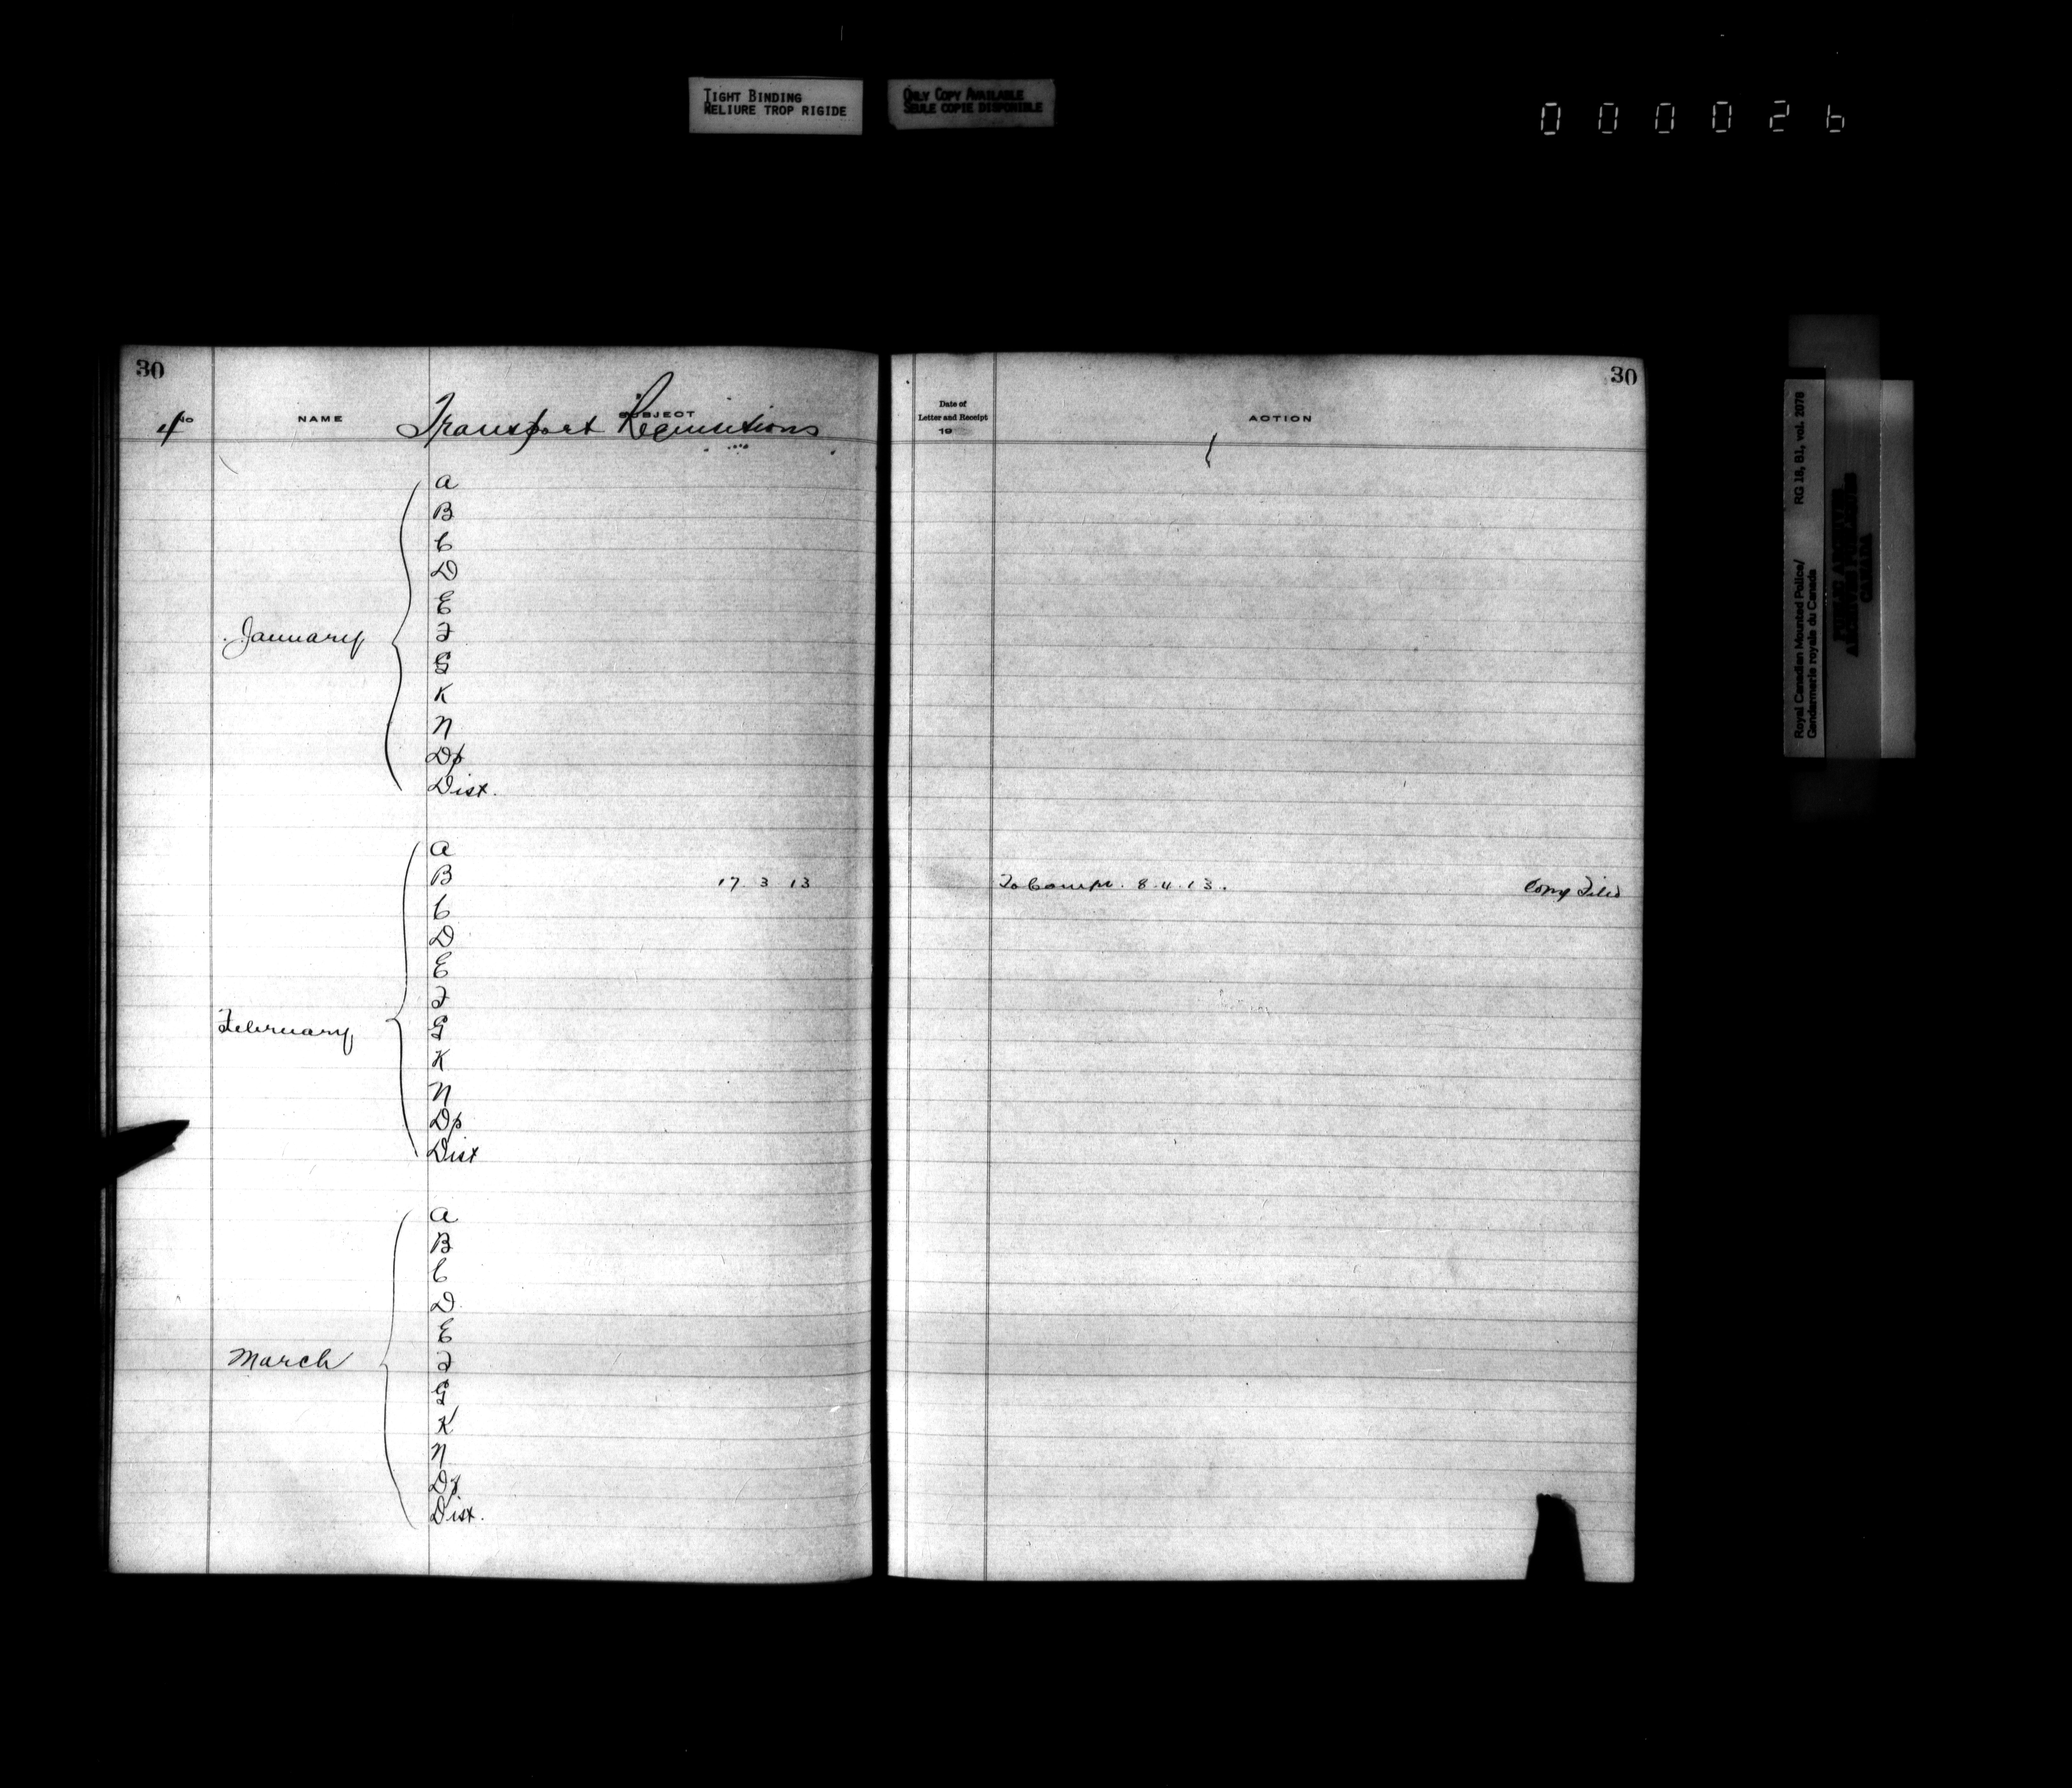 TIGHT BINDING
RELIURE TROP RIGIDE
ONLY COPY AVAILABLE
SEULE COPIE DISPONIBLE
000026
30
No
4
NAME
SUBJECT
Transport Requisitions
January
A
B
C
D
E
F
G
K
N
Dp
Dist.
February
A
B 17 3 13
C
D
E
F
G
K
N
Dp
Dist
March
A
B
C
D
E
F
G
K
N
Dp
Dist.
30
Date of
Letter and Receipt
19
ACTION
To Compr. 8.4.13. Copy Filed
Royal Canadian Mounted Police/
Gendarmerie royale du Canada
RG 18, B1, vol. 2078
PUBLIC ARCHIVES
ARCHIVES PUBLIQUES
CANADA